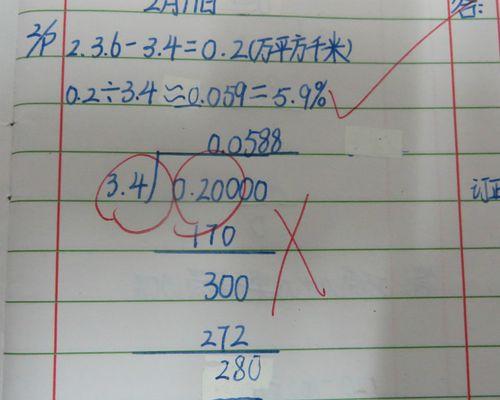 2月11日
答:
2/P 2. 3.6-3.4=0.2(万平方千米)
0.2÷3.4≈0.059=5.9%
0.0588
3.4 0.20000
170
300
272
280
订正